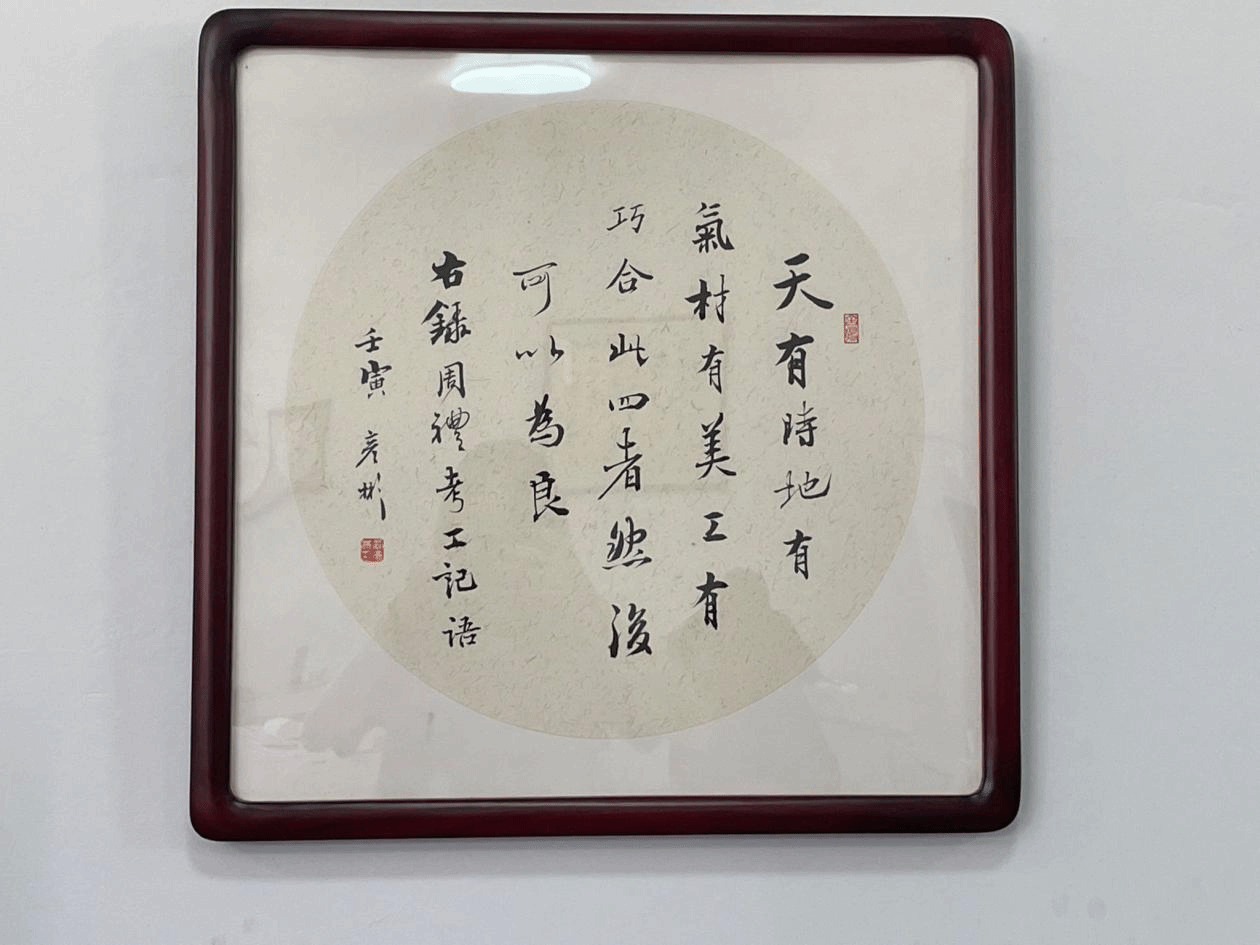 天有時地有
氣材有美工有
巧合此四者然後
可以為良
右錄周禮考工記語
壬寅 彦彬